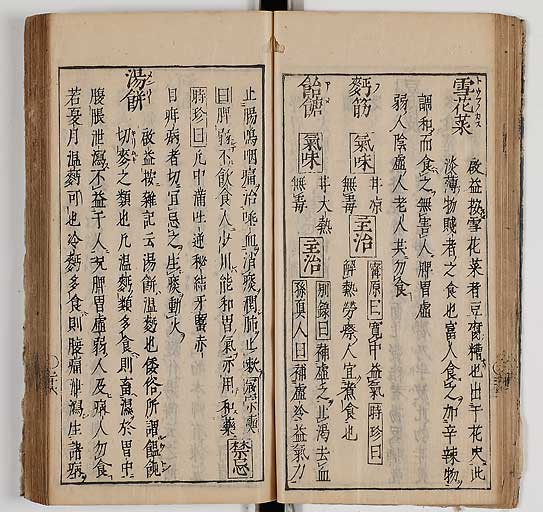 雪花菜
トウフノカス
啟益按雪花菜者豆腐糟也出于花史此
淡薄物賤者之食也富人食之加辛辣物
調和而食之無害人脾胃虛
弱人陰虛人老人共勿食
麪筋
フ
氣味 甘凉
無毒
主治 甯原曰寬中益氣時珍曰
解熱勞瘵人宜煮食也
飴餹
アメ
氣味 甘大熱
無毒
主治 別錄曰補虛乏止渴去血
孫真人曰補虛冷益氣力
止腸鳴咽痛治唾血消痰潤肺止嗽
曰脾弱不飲食人少用能和胃氣亦用和藥 禁忌
時珍曰凡中滿吐逆秘結牙䘌赤
目疳病者切宜忌之生痰動火
湯餅
啟益按雜記云湯餅溫麪也倭俗所謂饂飩
切麥之類也凡溫麪類多食則畜濕於胃中
腹脹泄瀉不益于人況脾胃虛弱人及病人勿食
若夏月溫麪可也冷麪多食則腹痛泄瀉生諸病